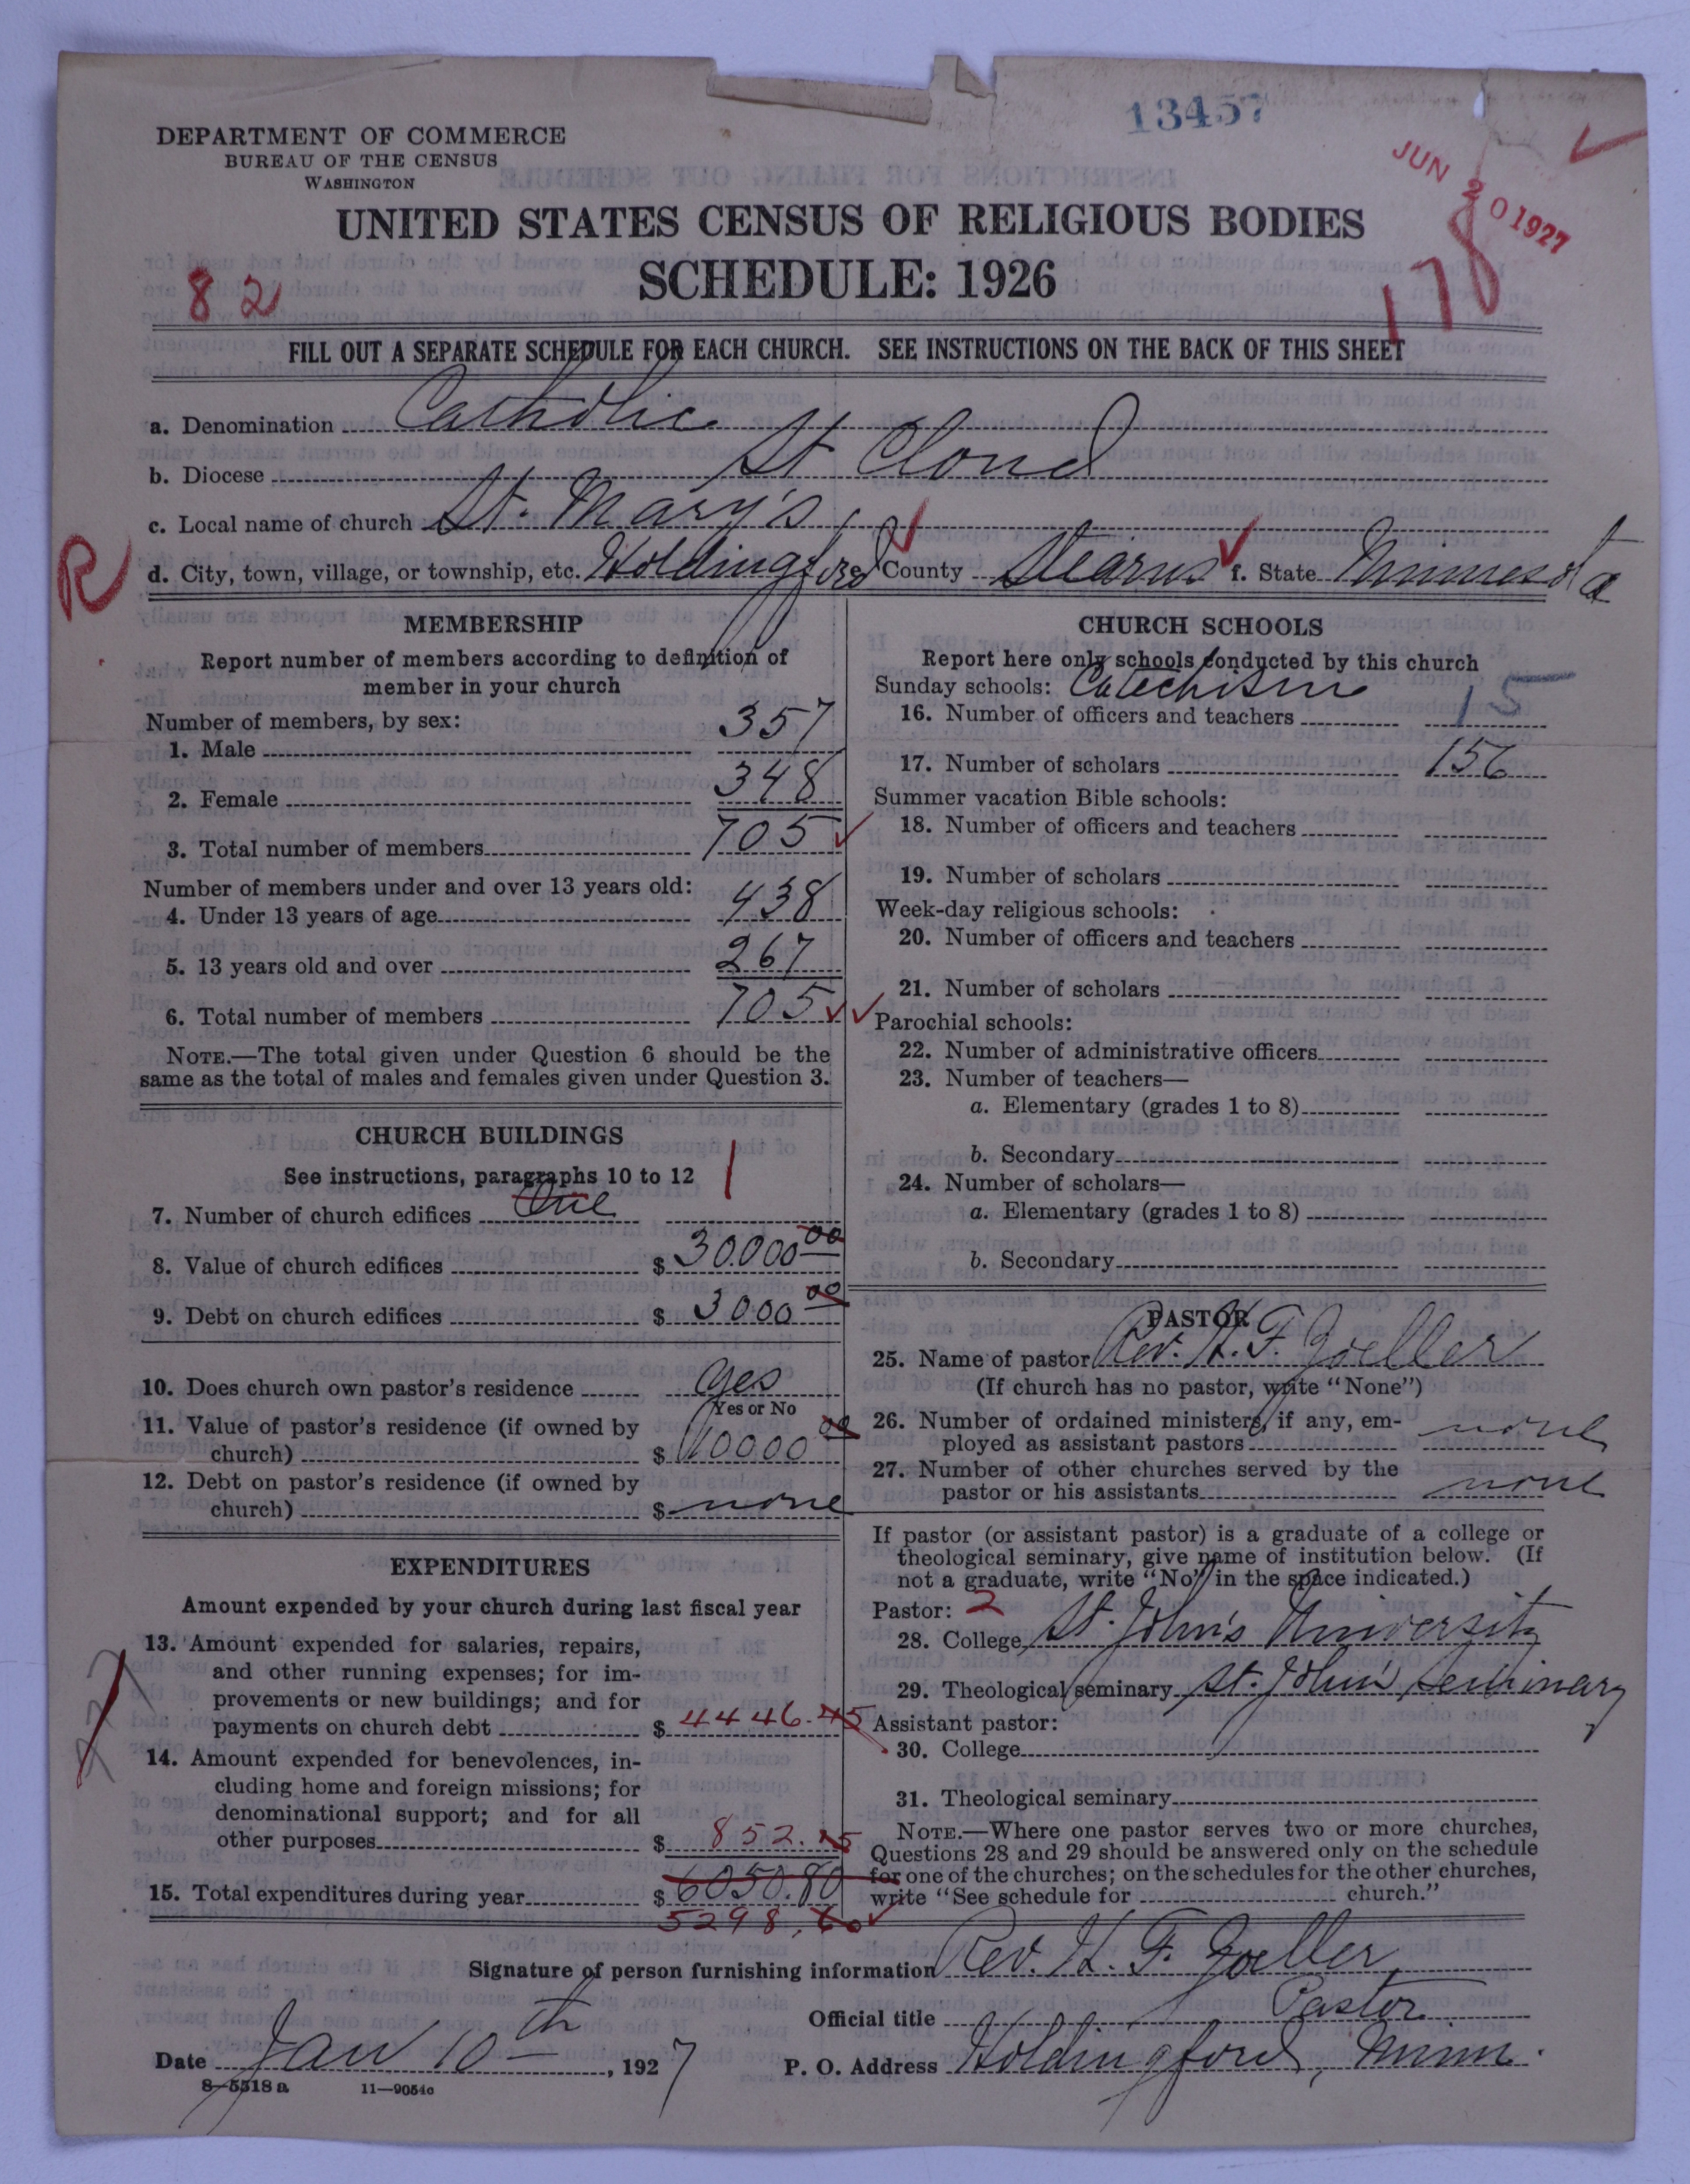 13457
JUN 20 1927
DEPARTMENT OF COMMERCE
BUREAU OF THE CENSUS
WASHINGTON
UNITED STATES CENSUS OF RELIGIOUS BODIES
SCHEDULE: 1926
82
178
FILL OUT A SEPARATE SCHEDULE FOR EACH CHURCH. SEE INSTRUCTIONS ON THE BACK OF THIS SHEET
a. Denomination Catholic
b. Diocese St Cloud
c. Local name of church St. Mary's
R
d. City, town, village, or township, etc. Holdingford e. County Stearns f. State Minnesota
MEMBERSHIP
Report number of members according to definition of
member in your church
Number of members, by sex:
1. Male 357
2. Female 348
3. Total number of members 705
Number of members under and over 13 years old:
4. Under 13 years of age 438
5. 13 years old and over 267
6. Total number of members 705
NOTE.—The total given under Question 6 should be the
same as the total of males and females given under Question 3.
CHURCH BUILDINGS
See instructions, paragraphs 10 to 12
7. Number of church edifices One 1
8. Value of church edifices $ 30.000 00
9. Debt on church edifices $ 3000 00
10. Does church own pastor's residence yes
Yes or No
11. Value of pastor's residence (if owned by
church) $ 10000 00
12. Debt on pastor's residence (if owned by
church) $ none
EXPENDITURES
Amount expended by your church during last fiscal year
13. Amount expended for salaries, repairs,
and other running expenses; for im-
provements or new buildings; and for
payments on church debt $ 4446.45
14. Amount expended for benevolences, in-
cluding home and foreign missions; for
denominational support; and for all
other purposes $ 852.15
15. Total expenditures during year $ 6050.80
5298.60
CHURCH SCHOOLS
Report here only schools conducted by this church
Sunday schools: Catechism
16. Number of officers and teachers 15
17. Number of scholars 156
Summer vacation Bible schools:
18. Number of officers and teachers
19. Number of scholars
Week-day religious schools:
20. Number of officers and teachers
21. Number of scholars
Parochial schools:
22. Number of administrative officers
23. Number of teachers—
a. Elementary (grades 1 to 8)
b. Secondary
24. Number of scholars—
a. Elementary (grades 1 to 8)
b. Secondary
PASTOR
25. Name of pastor Rev. H. F. Zoeller
(If church has no pastor, write "None")
26. Number of ordained ministers, if any, em-
ployed as assistant pastors none
27. Number of other churches served by the
pastor or his assistants none
If pastor (or assistant pastor) is a graduate of a college or
theological seminary, give name of institution below. (If
not a graduate, write "No" in the space indicated.)
Pastor: 2
28. College St. John's University
29. Theological seminary St. John's Seminary
Assistant pastor:
30. College
31. Theological seminary
NOTE.—Where one pastor serves two or more churches,
Questions 28 and 29 should be answered only on the schedule
for one of the churches; on the schedules for the other churches,
write "See schedule for church."
Signature of person furnishing information Rev. H. F. Zoeller
Official title Pastor
Date Jan 10th, 1927 P. O. Address Holdingford, Minn.
8—5518 a 11—9054c